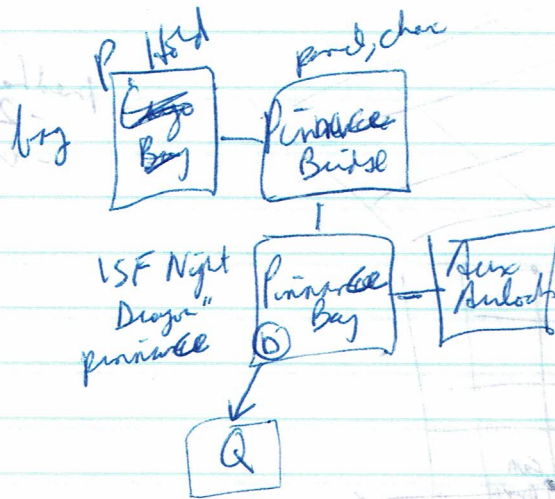 P Hold
panel, chair
bag
Cargo
Bay
Pinnance
Bridge
ISF Night
Dragon"
pinnance
Pinnance
Bay
D
Aux
Airlock
Q